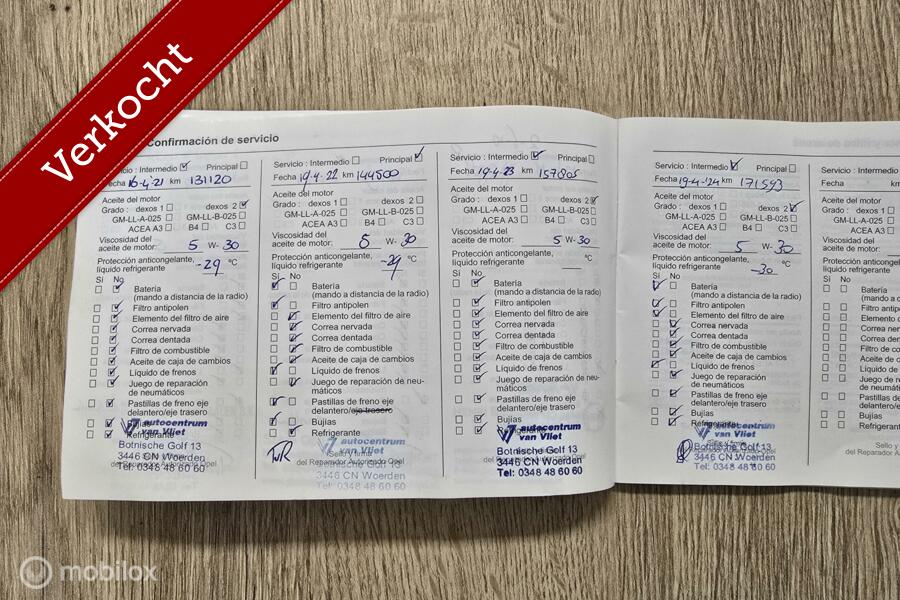 Verkocht
Confirmación de servicio
Servicio : Intermedio Principal
Fecha 16-4-21 km 131120
Aceite del motor
Grado : dexos 1 dexos 2
GM-LL-A-025 GM-LL-B-025
ACEA A3 B4 C3
Viscosidad del
aceite de motor: 5 W- 30
Protección anticongelante,
líquido refrigerante -29 °C
Sí No
Batería
(mando a distancia de la radio)
Filtro antipolen
Elemento del filtro de aire
Correa nervada
Correa dentada
Filtro de combustible
Aceite de caja de cambios
Líquido de frenos
Juego de reparación
de neumáticos
Pastillas de freno eje
delantero/eje trasero
Bujías
Refrigerante
autocentrum
van Vliet
Botnische Golf 13
3446 CN Woerden
Tel: 0348 48 60 60
Servicio : Intermedio Principal
Fecha 19-4-22 km 144500
Aceite del motor
Grado : dexos 1 dexos 2
GM-LL-A-025 GM-LL-B-025
ACEA A3 B4 C3
Viscosidad del
aceite de motor: 5 W- 30
Protección anticongelante,
líquido refrigerante -29 °C
Sí No
Batería
(mando a distancia de la radio)
Filtro antipolen
Elemento del filtro de aire
Correa nervada
Correa dentada
Filtro de combustible
Aceite de caja de cambios
Líquido de frenos
Juego de reparación de neu-
máticos
Pastillas de freno eje
delantero/eje trasero
Bujías
Refrigerante
autocentrum
van Vliet
Sello y firma
del Reparador Autorizado Opel
Botnische Golf 13
3446 CN Woerden
Tel: 0348 48 60 60
Servicio : Intermedio Principal
Fecha 19-4-23 km 157805
Aceite del motor
Grado : dexos 1 dexos 2
GM-LL-A-025 GM-LL-B-025
ACEA A3 B4 C3
Viscosidad del
aceite de motor: 5 W- 30
Protección anticongelante,
líquido refrigerante °C
Sí No
Batería
(mando a distancia de la radio)
Filtro antipolen
Elemento del filtro de aire
Correa nervada
Correa dentada
Filtro de combustible
Aceite de caja de cambios
Líquido de frenos
Juego de reparación
de neumáticos
Pastillas de freno eje
delantero/eje trasero
Bujías
Refrigerante
autocentrum
van Vliet
Botnische Golf 13
3446 CN Woerden
Tel: 0348 48 60 60
Servicio : Intermedio Principal
Fecha 19-4-'24 km 171593
Aceite del motor
Grado : dexos 1 dexos 2
GM-LL-A-025 GM-LL-B-025
ACEA A3 B4 C3
Viscosidad del
aceite de motor: 5 W- 30
Protección anticongelante,
líquido refrigerante -30 °C
Sí No
Batería
(mando a distancia de la radio)
Filtro antipolen
Elemento del filtro de aire
Correa nervada
Correa dentada
Filtro de combustible
Aceite de caja de cambios
Líquido de frenos
Juego de reparación
de neumáticos
Pastillas de freno eje
delantero/eje trasero
Bujías
Refrigerante
autocentrum
van Vliet
Botnische Golf 13
3446 CN Woerden
Tel: 0348 48 60 60
Servicio : Intermedio
Fecha km
Aceite del motor
Grado : dexos 1
GM-LL-A-025
ACEA A3
Viscosidad del
aceite de motor:
Protección anticongelante,
líquido refrigerante
Sí No
Batería
(mando a
Filtro antipolen
Elemento del
Correa nervada
Correa dentada
Filtro de
Aceite de
Líquido de
Juego de
de neumáticos
Pastillas de
delantero/eje
Bujías
Refrigerante
Sello y
del Reparador
mobilox